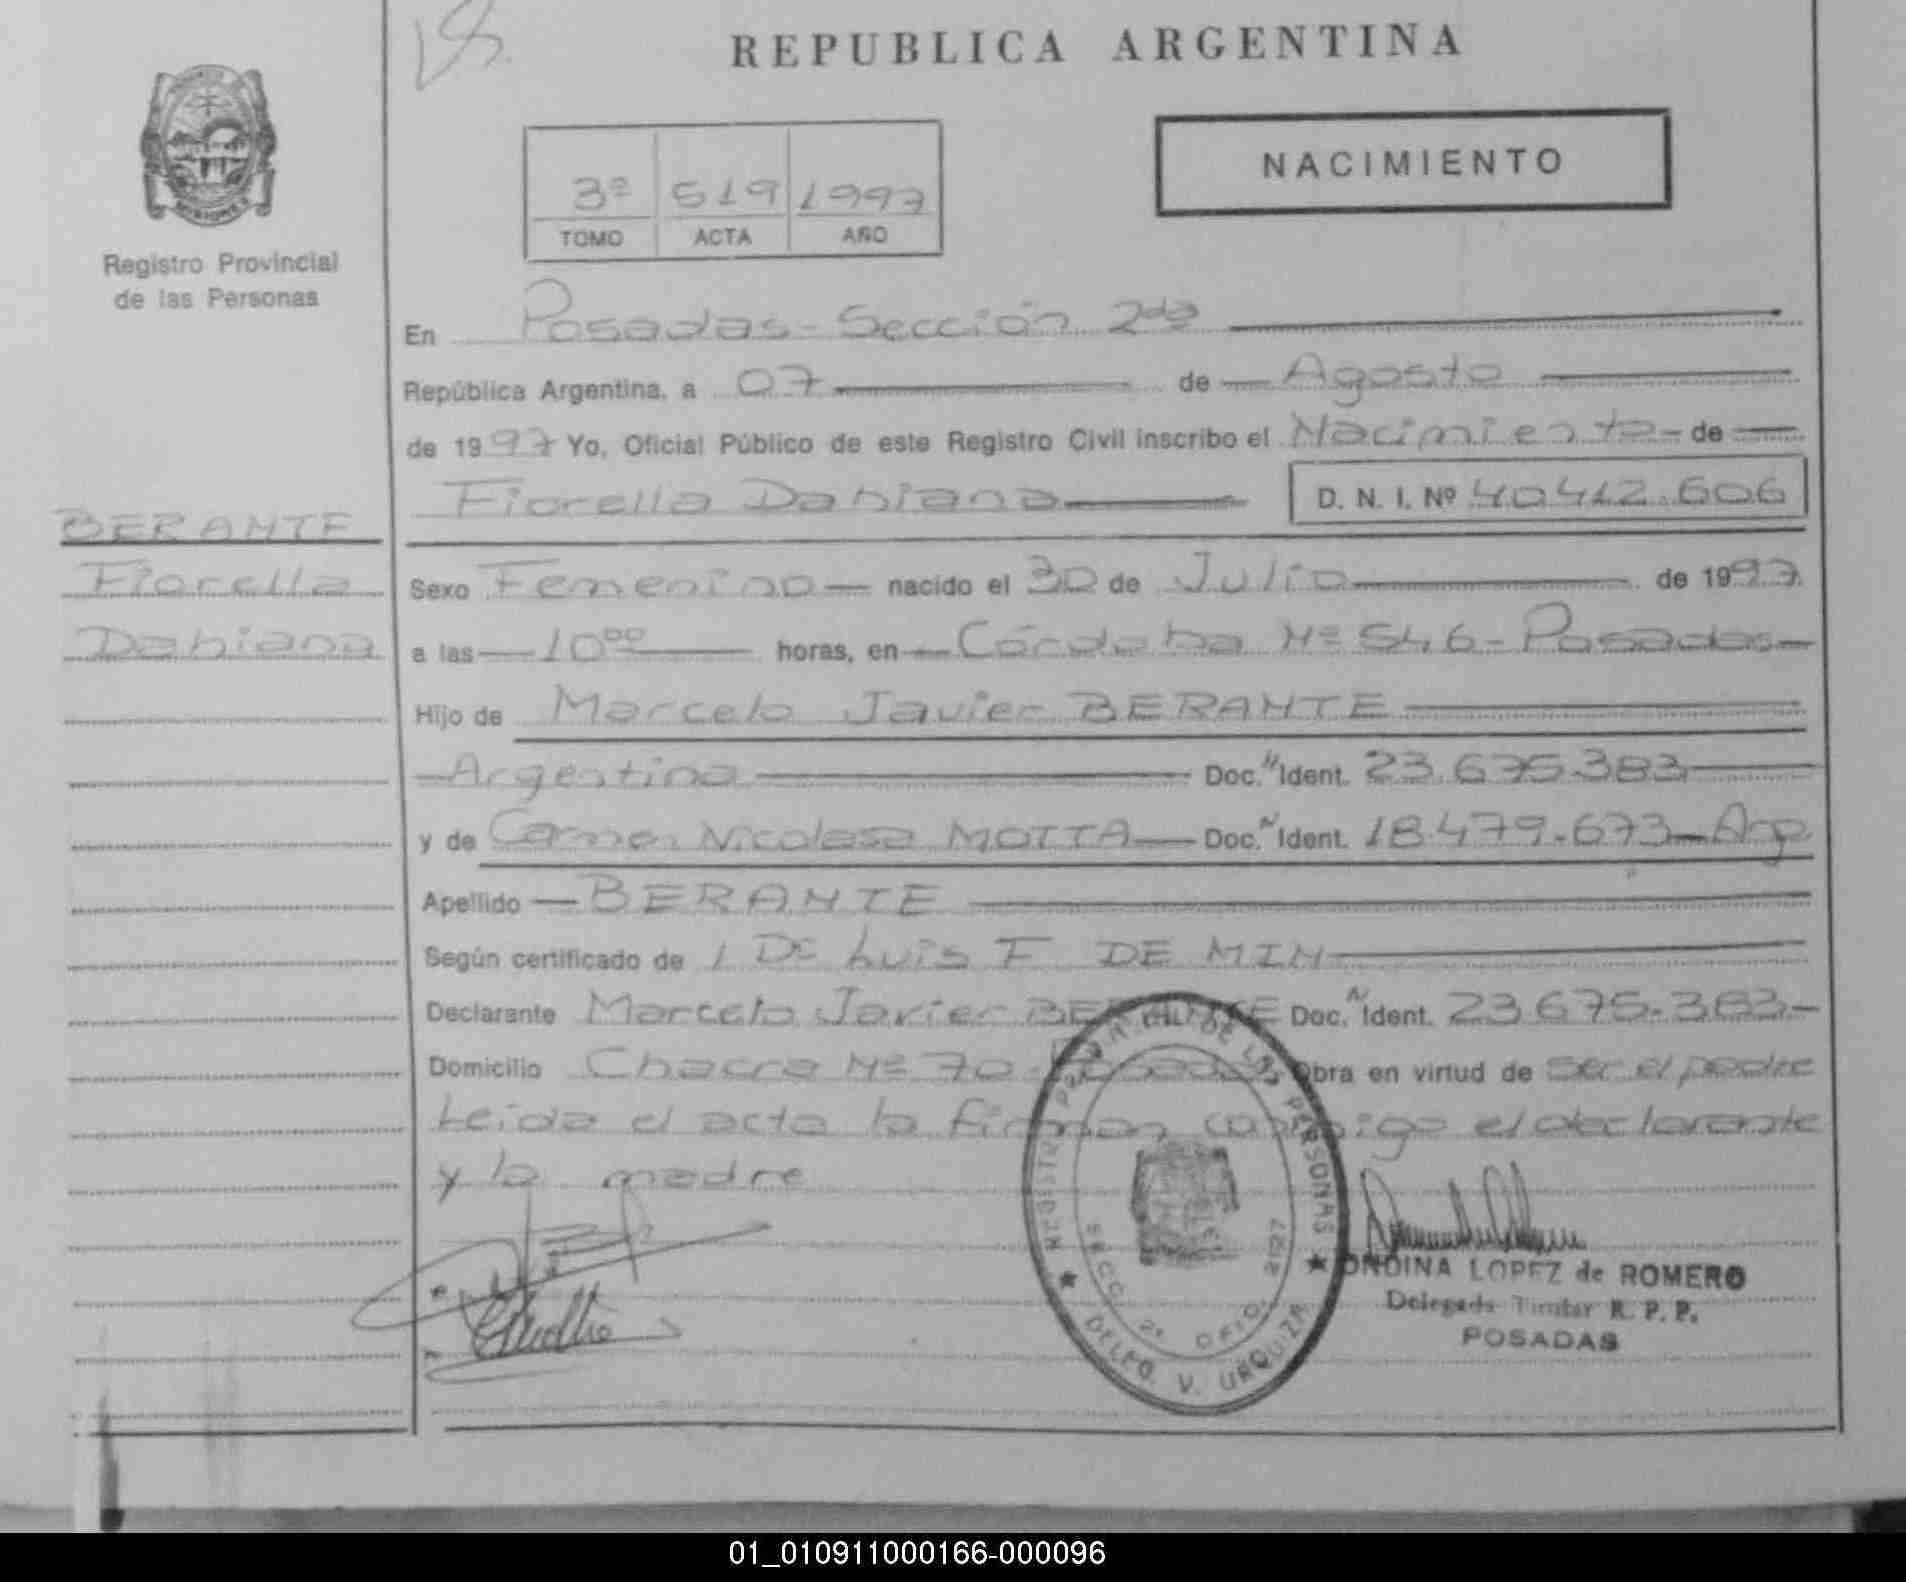 REPUBLICA ARGENTINA
MISIONES
Registro Provincial
de las Personas
3º 519 1997
TOMO ACTA AÑO
NACIMIENTO
En Posadas - Sección 2da
República Argentina, a 07 de Agosto
de 1997 Yo, Oficial Público de este Registro Civil inscribo el Nacimiento de
Fiorella Dahiana D. N. I. Nº 40412.606
BERANTE
Fiorella
Dahiana
Sexo Femenino nacido el 30 de Julio de 1997
a las 10⁰⁰ horas, en Córdoba Nº 546 - Posadas
Hijo de Marcelo Javier BERANTE
Argentina Doc. N Ident. 23.675.383
y de Carmen Nicolasa MOTTA Doc. N Ident. 18.479.673 Arg
Apellido BERANTE
Según certificado de 1 Dr Luis F DE MIN
Declarante Marcelo Javier BERANTE Doc. N Ident. 23.675.383
Domicilio Chacra Nº 70 - Posadas Obra en virtud de ser el padre
Leida el acta la firman conmigo el declarante
y la madre
REGISTRO PROVINCIAL DE LAS PERSONAS
SECC. 2ª OFIC. 2127
DELFO. V. URQUIZA
ONDINA LOPEZ de ROMERO
Delegada Titular R. P. P.
POSADAS
01_010911000166-000096